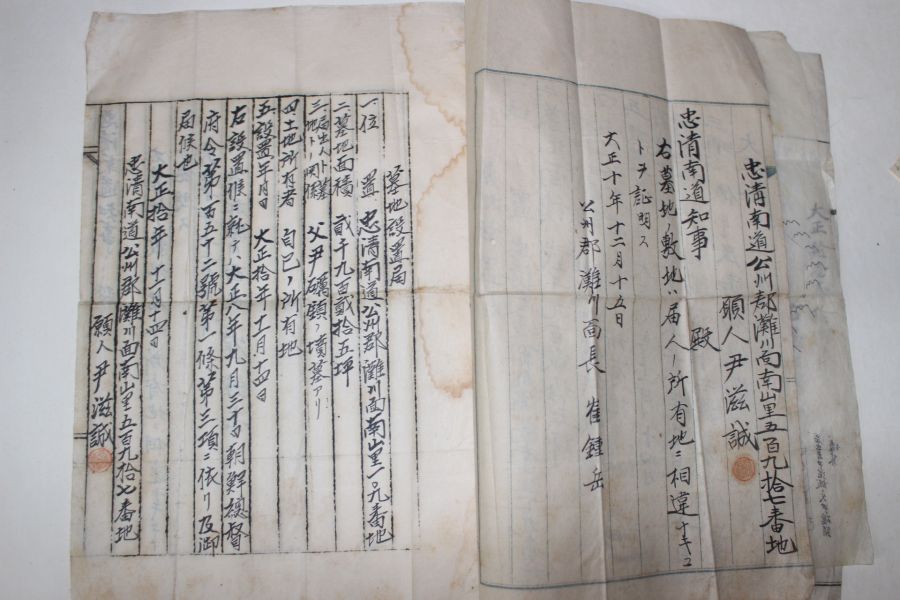 忠清南道公州郡灘川面南山里五百九拾七番地
願人 尹滋誠
忠清南道知事 殿
右墓地ノ敷地ハ届人ノ所有地ニ相違ナキコ
トヲ証明ス
大正十年十二月十五日
公州郡灘川面長 崔鍾岳
墓地設置届
一、位置 忠清南道公州郡灘川面南山里一〇九番地
二、墓地面積 貳千九百貳拾五坪
三、届出人ト墓地トノ関係 父尹顕ノ墳墓アリ
四、土地所有者 自己ノ所有地
五、設置年月日 大正拾年十二月十四日
右設置候ニ就テハ大正八年九月三十日朝鮮総督
府令第百五十二號第一條第三項ニ依リ及御
届候也
大正拾年十二月十四日
忠清南道公州郡灘川面南山里五百九拾七番地
願人 尹滋誠
大正